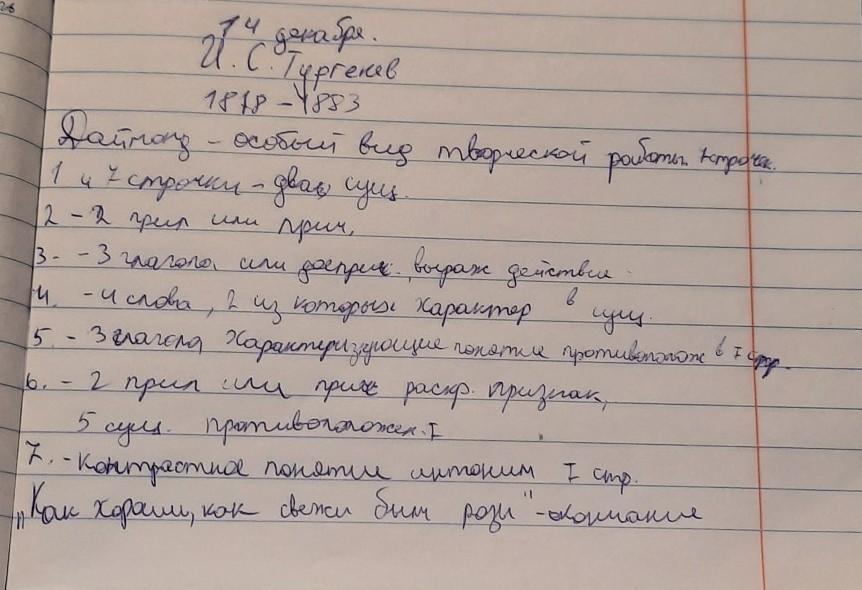 14 декабря.
И. С. Тургенев
1818 – 1883
Даймонд – особый вид творческой работы 7 строчек.
1 и 7 строчки – два сущ.
2 – 2 прил или прич.
3. – 3 глагола или дееприч. выраж действие
4. – 4 слова, 2 из которых характер в сущ.
5. – 3 глагола характеризующие понятие противополож в I стр.
6. – 2 прил или прич раскр. признак,
5 сущ. противоположен. I
7. – контрастное понятие антоним I стр.
„Как хороши, как свежи были розы" –